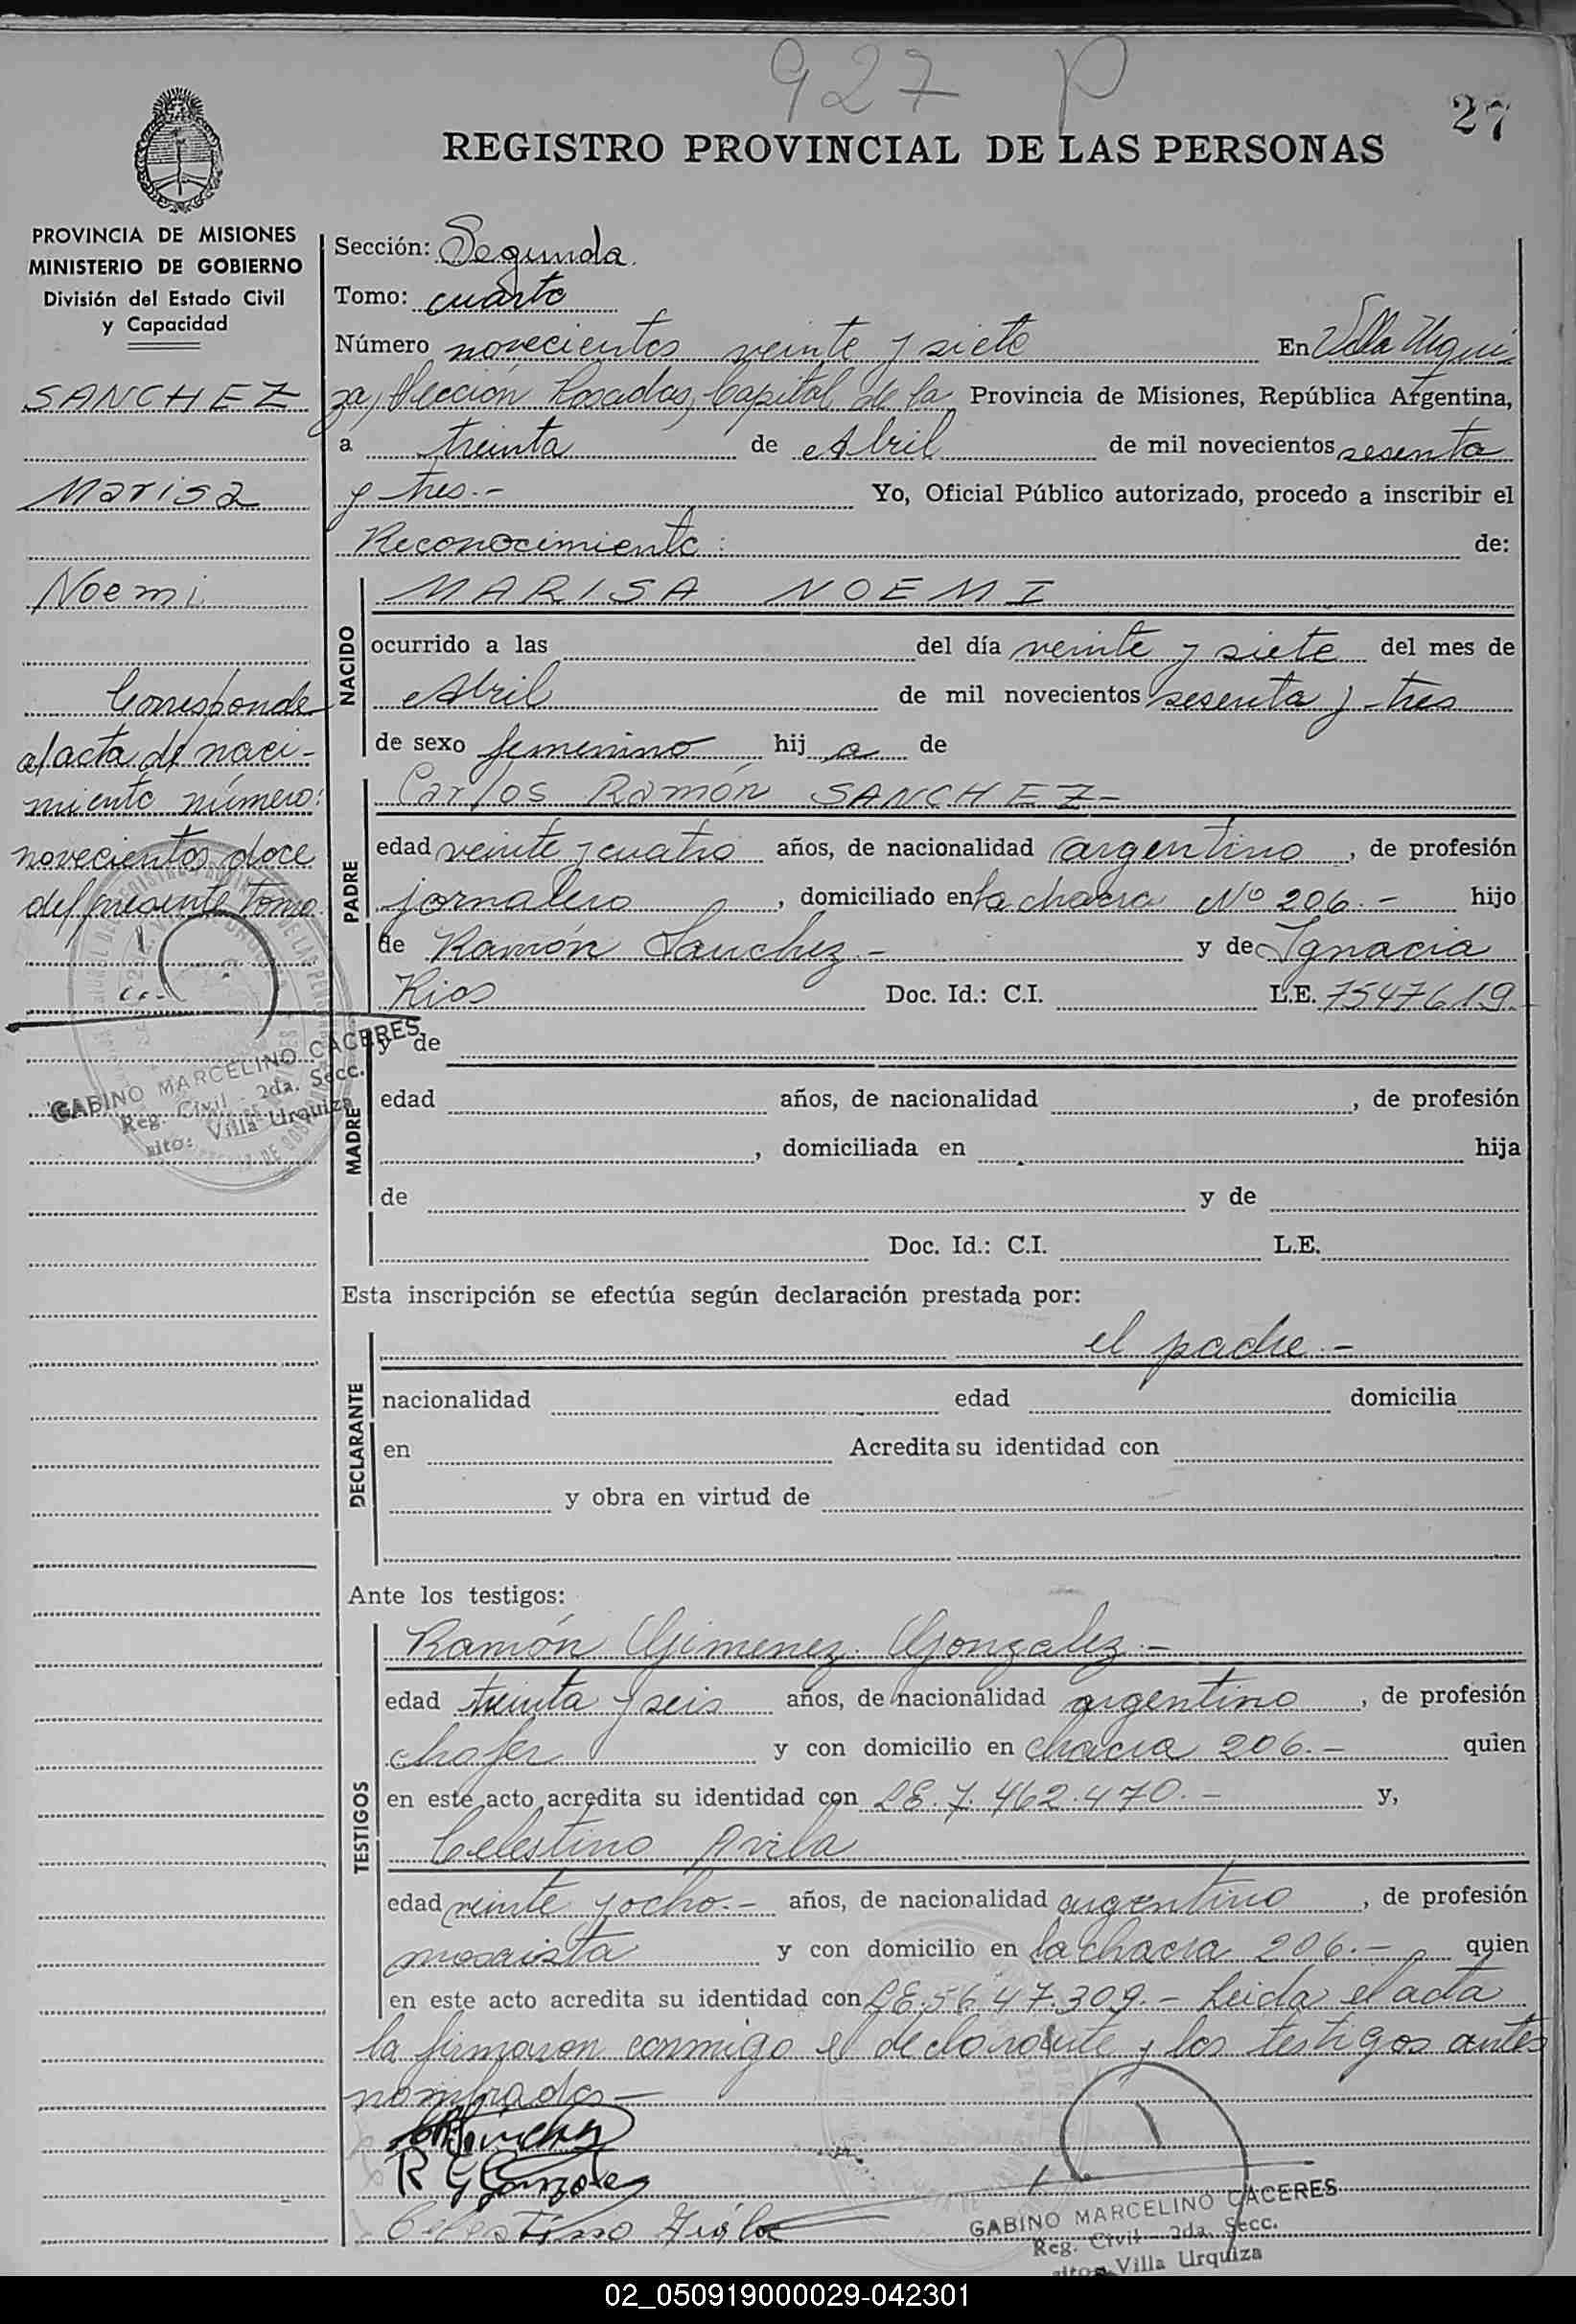 927 P
27
REGISTRO PROVINCIAL DE LAS PERSONAS
PROVINCIA DE MISIONES
MINISTERIO DE GOBIERNO
División del Estado Civil
y Capacidad
SANCHEZ
Marisa
Noemi
Corresponde
al acta de naci-
miento número:
novecientos doce
del presente Tomo.
GABINO MARCELINO CACERES
Reg. Civil - 2da. Secc.
sito: Villa Urquiza
Sección: Segunda.
Tomo: cuarto
Número novecientos veinte y siete En Villa Urqui
za, Sección Posadas, Capital de la Provincia de Misiones, República Argentina,
a treinta de Abril de mil novecientos sesenta
y tres.- Yo, Oficial Público autorizado, procedo a inscribir el
Reconocimiento: de:
NACIDO
MARISA NOEMI
ocurrido a las del día veinte y siete del mes de
Abril de mil novecientos sesenta y tres
de sexo femenino hij a de
PADRE
Carlos Ramón SANCHEZ-
edad veinte y cuatro años, de nacionalidad argentino, de profesión
jornalero, domiciliado en la chacra Nº 206.- hijo
de Ramón Sanchez.- y de Ignacia
Rios Doc. Id.: C.I. L.E. 7547619-
MADRE
y de
edad años, de nacionalidad , de profesión
, domiciliada en hija
de y de
Doc. Id.: C.I. L.E.
Esta inscripción se efectúa según declaración prestada por:
DECLARANTE
el padre.-
nacionalidad edad domicilia
en Acredita su identidad con
y obra en virtud de
Ante los testigos:
TESTIGOS
Ramón Gimenez Gonzalez.-
edad treinta y seis años, de nacionalidad argentino, de profesión
chofer y con domicilio en chacra 206.- quien
en este acto acredita su identidad con LE. 7.462.470.- y,
Celestino Avila
edad veinte y ocho.- años, de nacionalidad argentino, de profesión
y con domicilio en la chacra 206.- quien
en este acto acredita su identidad con LE. 5647.309.- Leida el acta
la firmaron conmigo el declarante y los testigos antes
nombrados-
R G Gonzalez
Celestino Avila
GABINO MARCELINO CACERES
Reg. Civil - 2da. Secc.
sito: Villa Urquiza
02_050919000029-042301